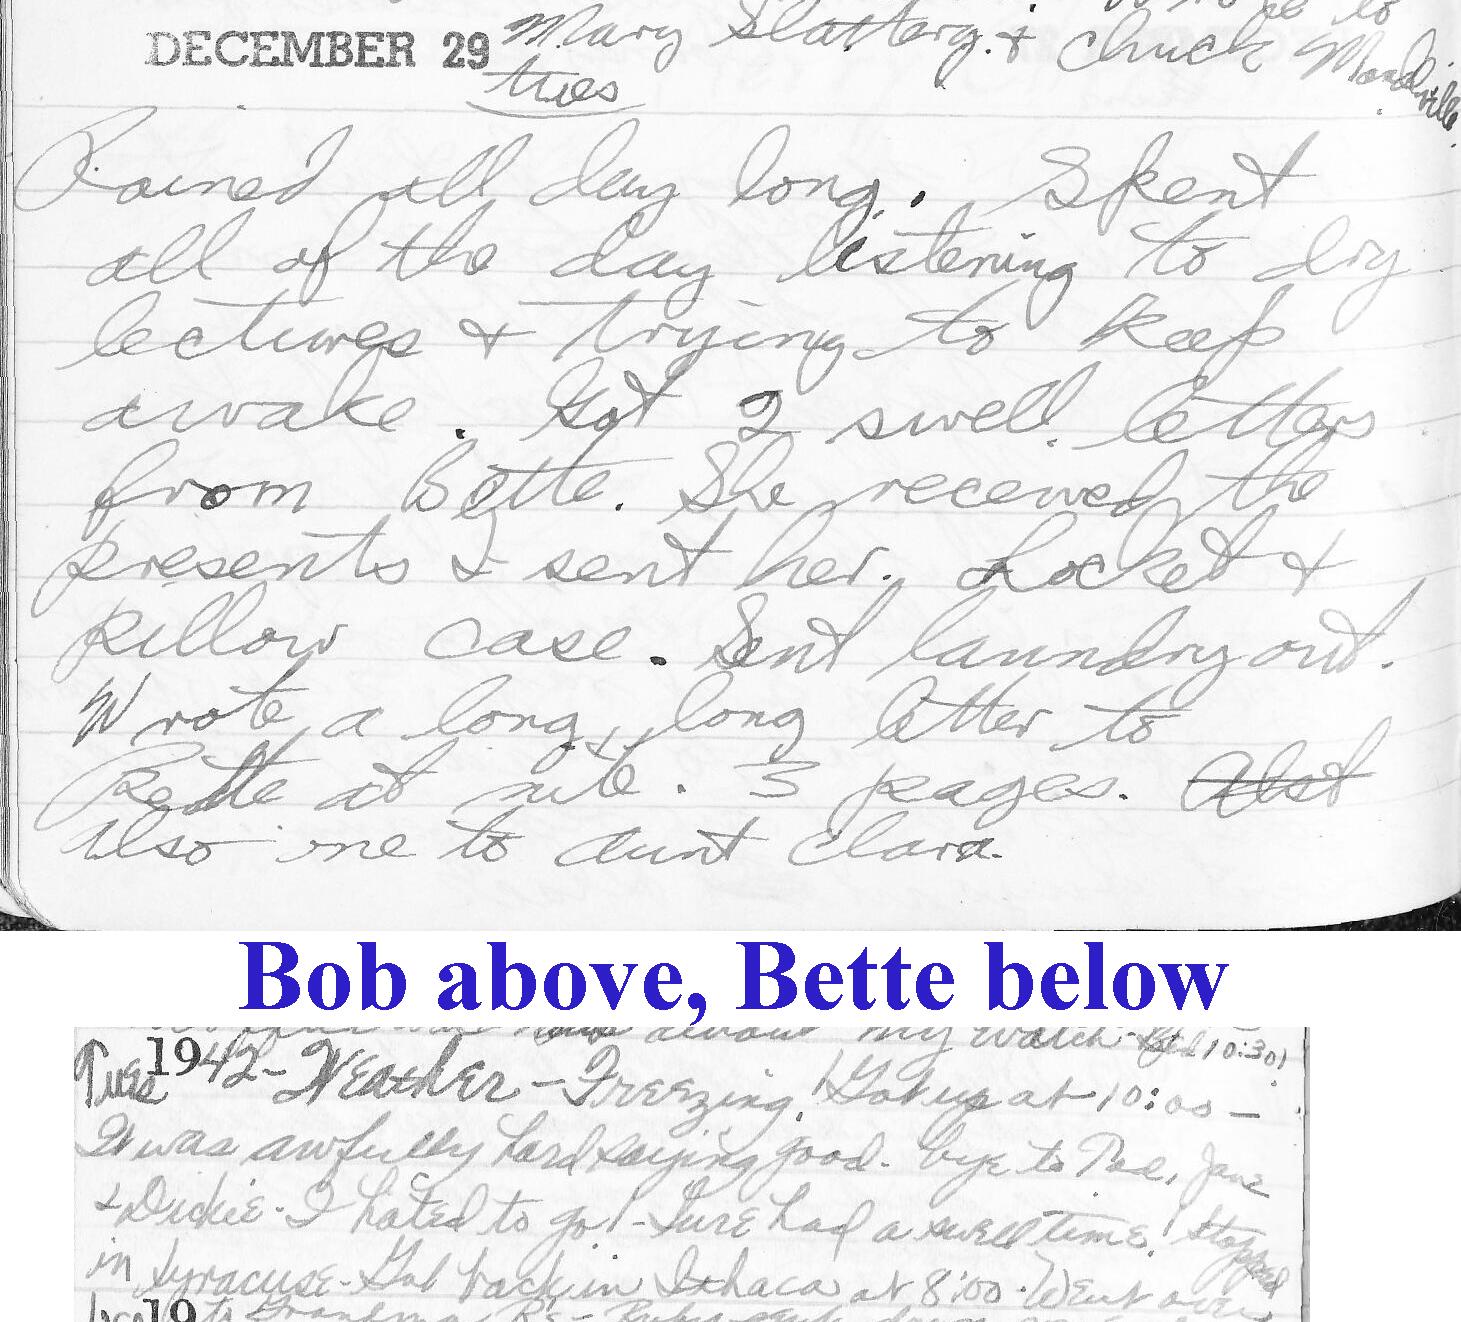 Wrote to
DECEMBER 29 Mary Slattery & Chuck Mandville
tues
Rained all day long. Spent
all of the day listening to dry
lectures & trying to keep
awake. Got 2 swell letters
from Bette. She received the
presents I sent her. Locket &
pillow case. Sent laundry out.
Wrote a long, long letter to
Bette at nite. 3 pages. Also
Also one to Aunt Clara.
Bob above, Bette below
about my watch. 10:30)
Tues 1942 - Weather - Freezing. Got up at 10:00 -
It was awfully hard saying good-bye to Pae, Jane
& Dickie. I hated to go! - Sure had a swell time! Stopped
in Syracuse - Got back in Ithaca at 8:00. Went over
19 to Grandma R's -